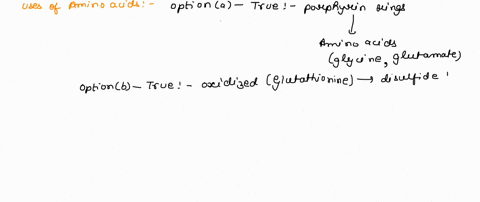 uses of Amino acids:- option(a) - True:- porphyrin rings
Amino acids
(glycine, glutamate)
option(b) - True:- oxidized (Glutathionine) → disulfide